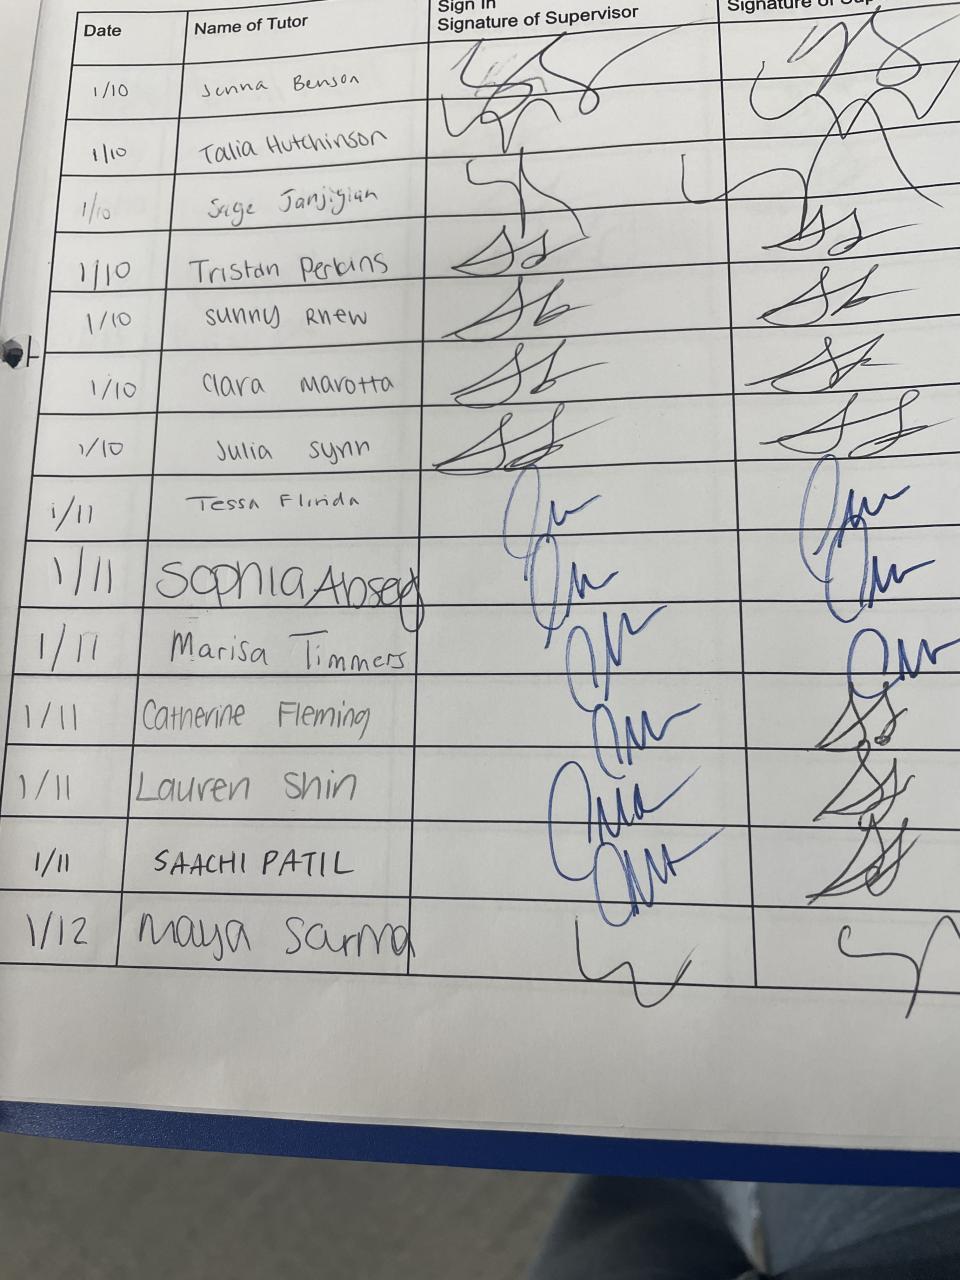 Sign In
Date Name of Tutor Signature of Supervisor Signature of
1/10 Jenna Benson
1/10 Talia Hutchinson
1/10 Sage Janjigian
1/10 Tristan Perkins
1/10 Sunny Rhew
1/10 Clara Marotta
1/10 Julia Synn
1/11 Tessa Florida
1/11 Sophia
1/11 Marisa Timmers
1/11 Catherine Fleming
1/11 Lauren Shin
1/11 SAACHI PATIL
1/12 Maya Sarma